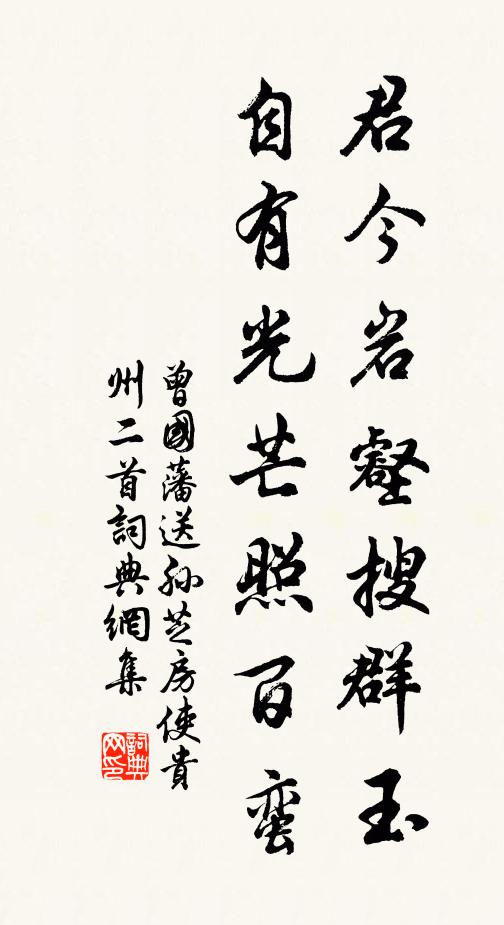 君今岩壑搜群玉
自有光芒照百蛮
曾國藩送孙芝房使貴
州二首詞典網集
詞典网印